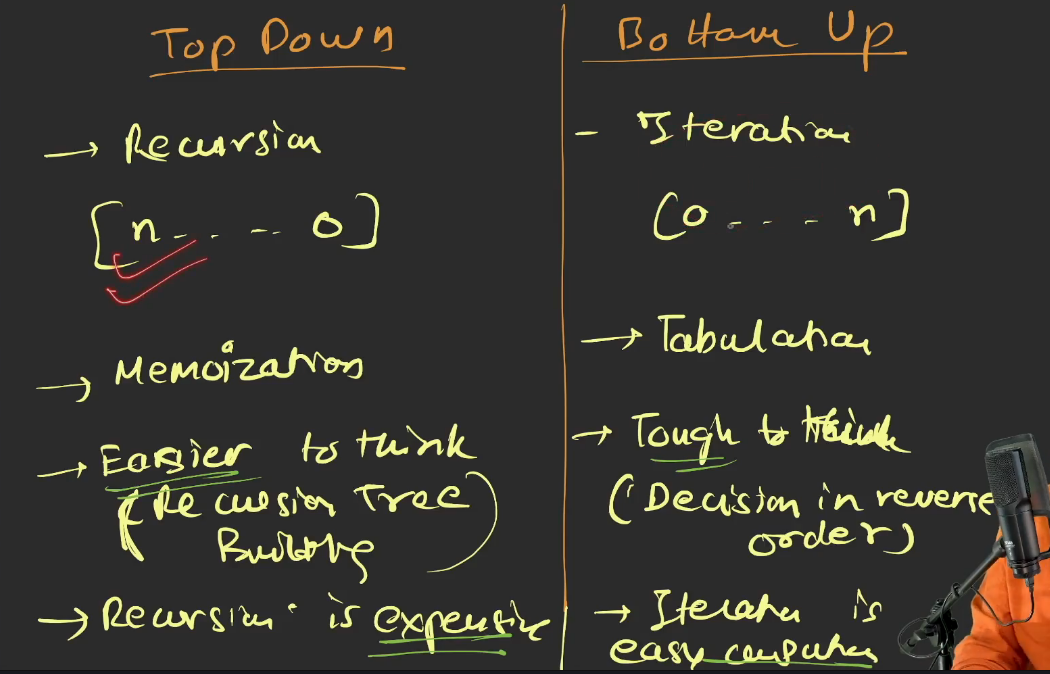 Top Down
→ Recursion
[n - - - - 0]
→ Memoization
→ Easier to think
(Recursion Tree
Building)
→ Recursion is expensive
Bottom Up
- Iteration
(0 - - - n]
→ Tabulation
→ Tough to think
(Decision in reverse
order)
→ Iteration is
easy computation